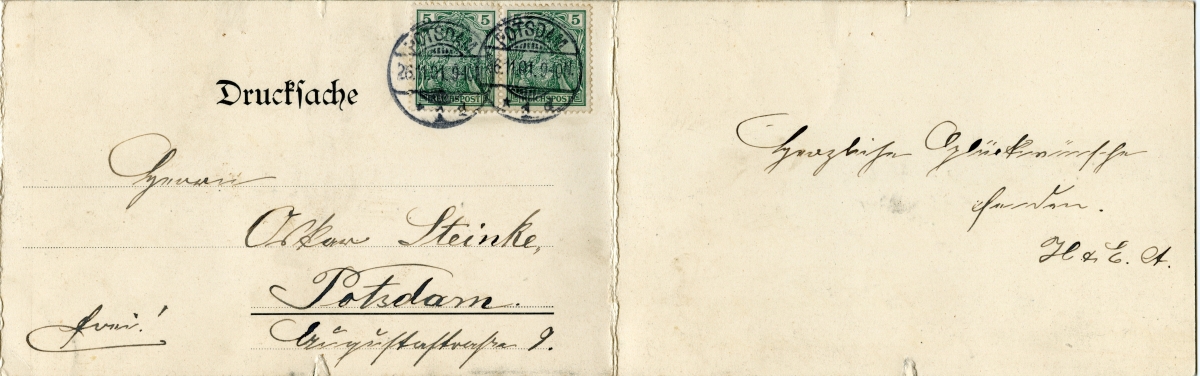 5 5
REICHSPOST
POTSDAM
26.11.01. 9-10V.
1
d
POTSDAM
26.11.01. 9-10V.
1
d
Drucksache
Herrn
Oskar Steinke,
Potsdam.
Augustastraße 9.
frei!
Herzliche Glückwünsche
senden.
H. & E. A.